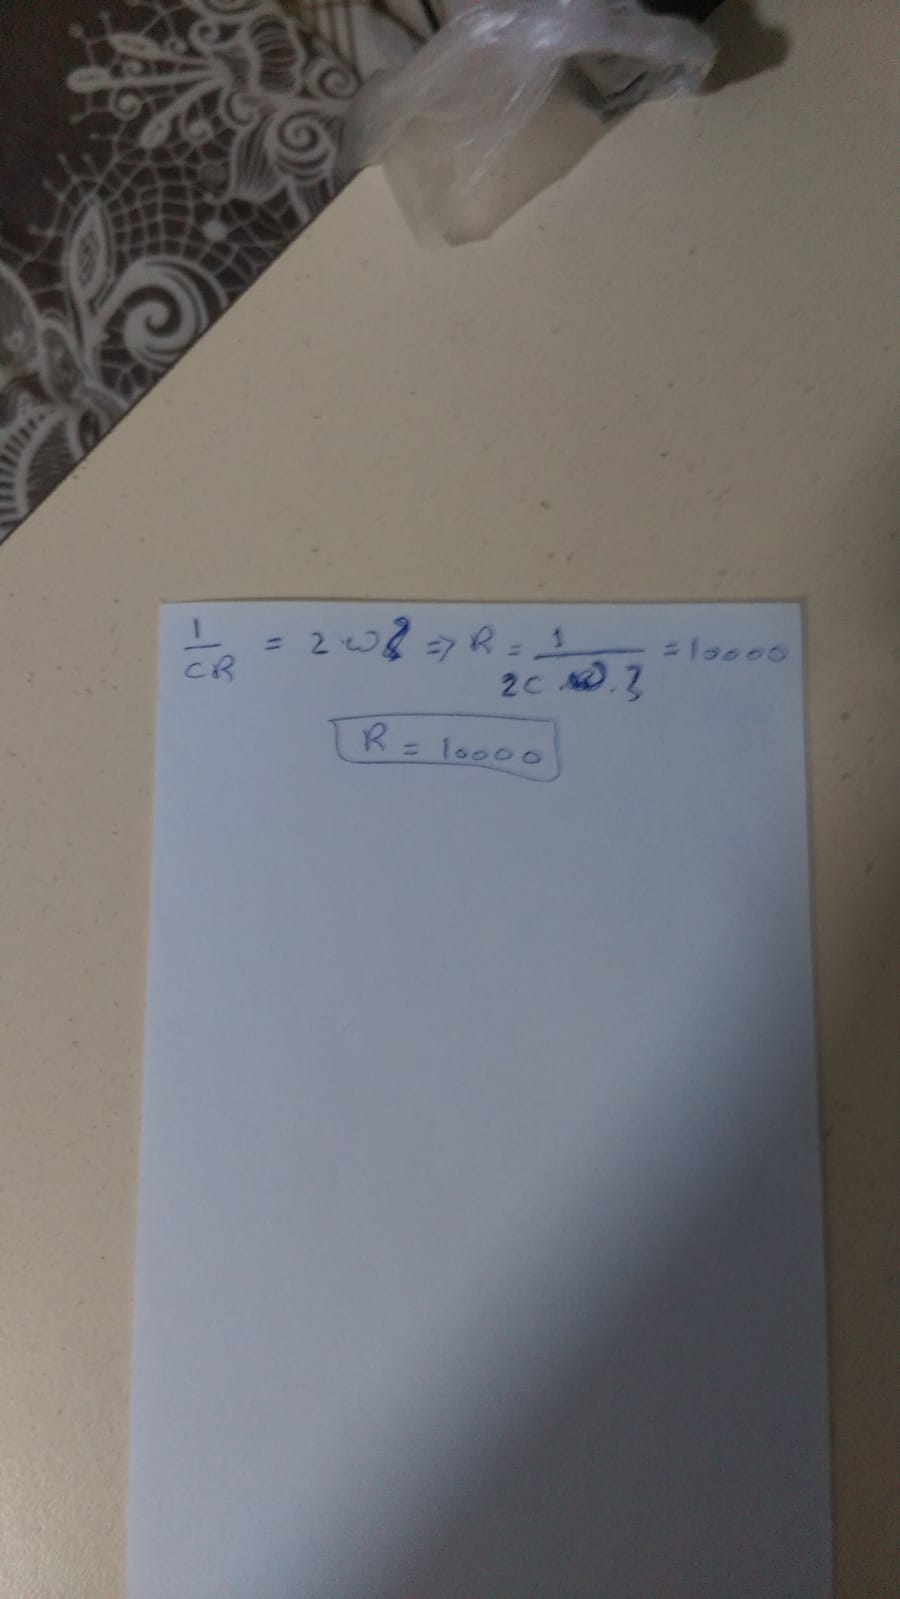 1/CR = 2ωξ => R = 1/2C.ω.ξ = 10000
R = 10000